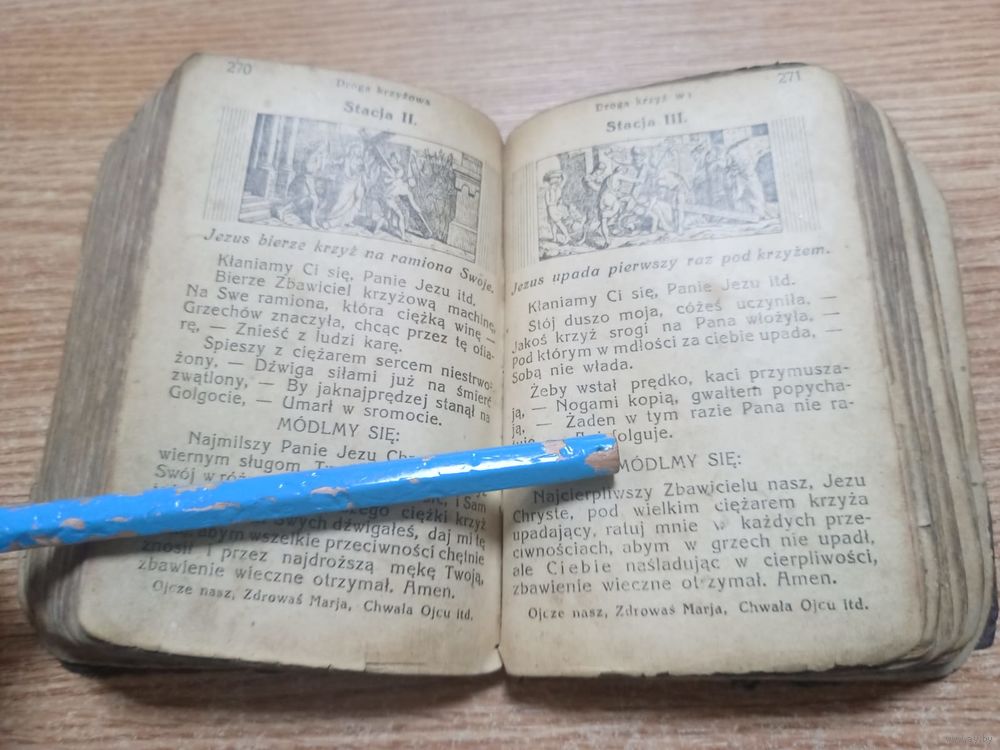 270
Droga krzyżowa
Stacja II.
Jezus bierze krzyż na ramiona Swoje.
Kłaniamy Ci się, Panie Jezu itd.
Bierze Zbawiciel krzyżową machinę,
Na Swe ramiona, która ciężką winę —
Grzechów znaczyła, chcąc przez tę ofia-
rę, — Znieść z ludzi karę.
Spieszy z ciężarem sercem niestrwo-
żony, — Dźwiga siłami już na śmierć
zwątlony, — By jaknajprędzej stanął na
Golgocie, — Umarł w sromocie.
MÓDLMY SIĘ:
Najmilszy Panie Jezu
wiernym sługom
Swój w
i Sam
ciężki krzyż
Swych dźwigałeś, daj mi tę
abym wszelkie przeciwności chętnie
znosił i przez najdroższą mękę Twoją,
zbawienie wieczne otrzymał. Amen.
Ojcze nasz, Zdrowaś Marja, Chwała Ojcu itd.
271
Droga krzyż
Stacja III.
Jezus upada pierwszy raz pod krzyżem.
Kłaniamy Ci się, Panie Jezu itd.
Stój duszo moja, cóżeś uczyniła, —
Jakoś krzyż srogi na Pana włożyła, —
Pod którym w mdłości za ciebie upada, —
Sobą nie włada.
Żeby wstał prędko, kaci przymusza-
ją, — Nogami kopią, gwałtem popycha-
ją, — Żaden w tym razie Pana nie ra-
folguje.
MÓDLMY SIĘ:
Najcierpliwszy Zbawicielu nasz, Jezu
Chryste, pod wielkim ciężarem krzyża
upadający, ratuj mnie w każdych prze-
ciwnościach, abym w grzech nie upadł,
ale Ciebie naśladując w cierpliwości,
zbawienie wieczne otrzymał. Amen.
Ojcze nasz, Zdrowaś Marja, Chwała Ojcu itd.